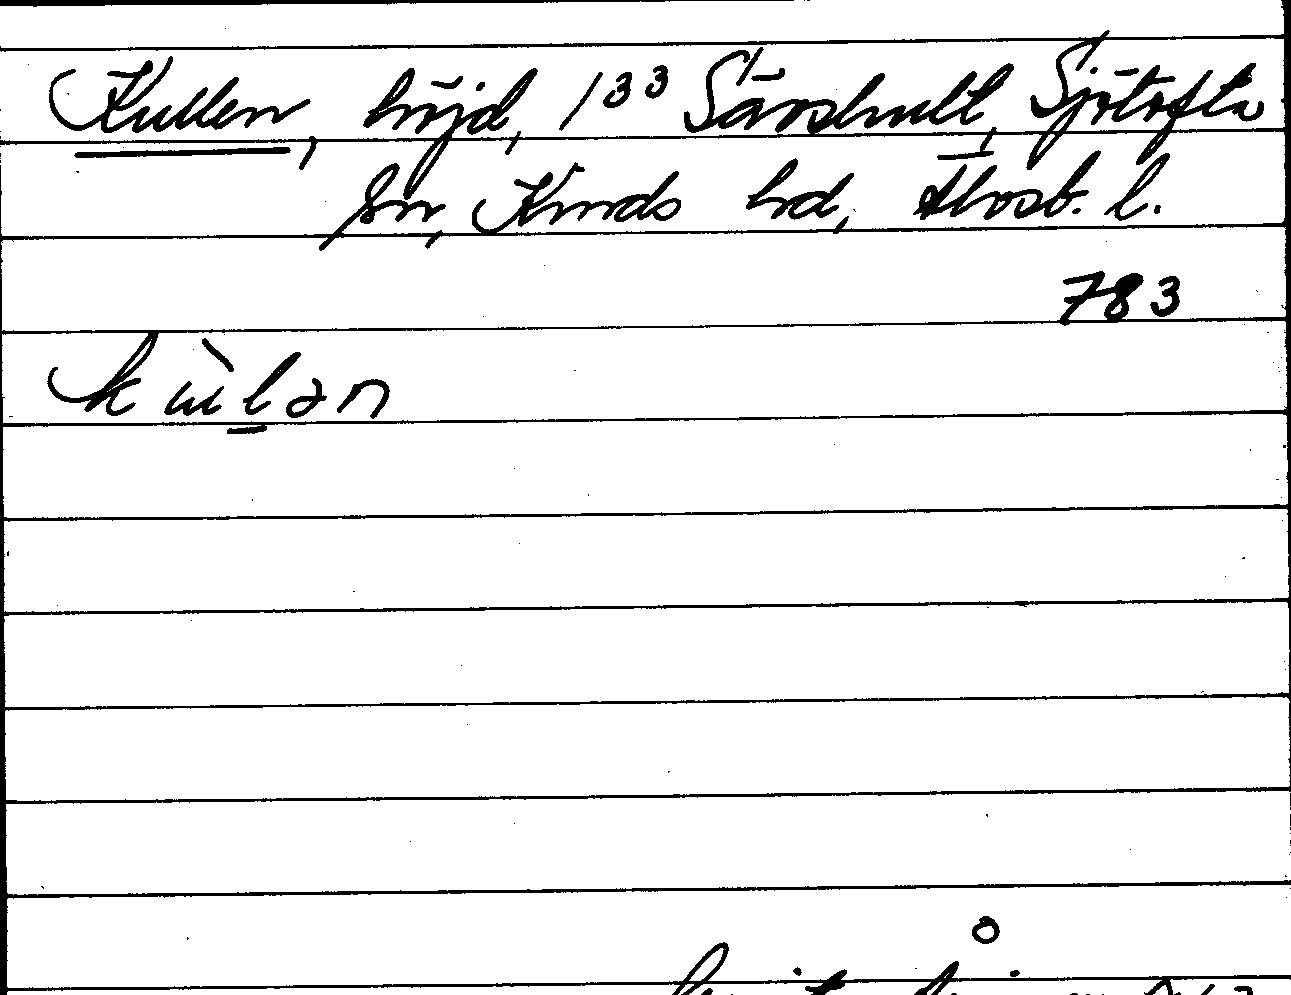 Kullen, höjd, 133 Särshult, Sjötofta
sn, Kinds hd, Älvsb. l.
783
kùlən